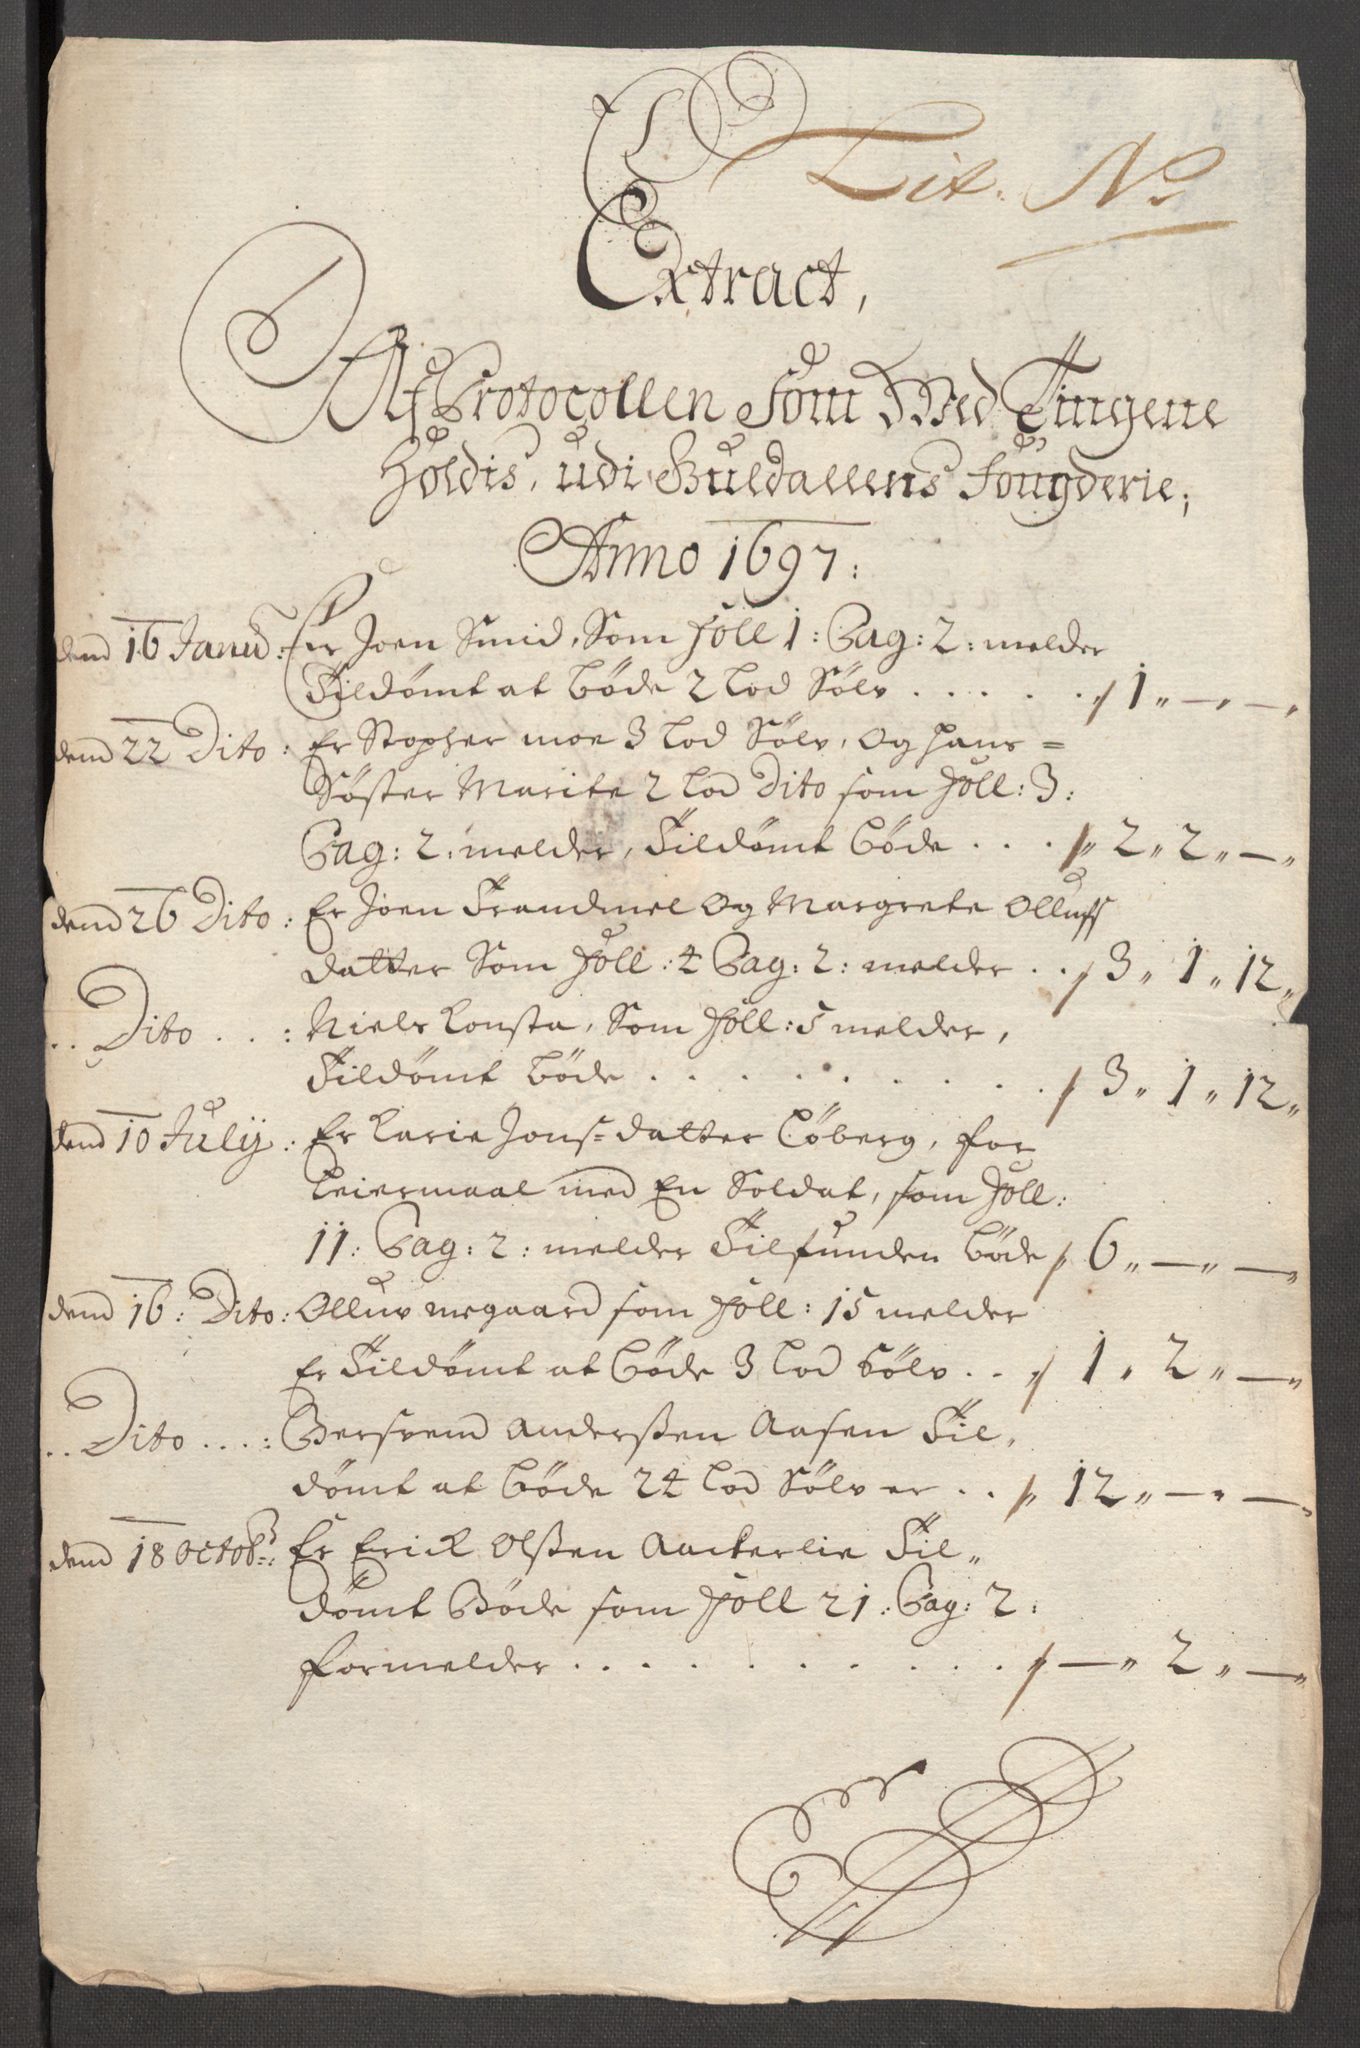 Lit. No
Extract,
Af Protocollen som Wed Tingene
Holdis, udi Guldallens Fougderie;
Anno 1697:
dend 16 Janu: Er Joen Smid, Som Foll 1: Pag: 2: melder
Tildømt at bøde 2 Lod Sølv . . . . . 1 „ — „ — „
dend 22 Dito: Er Stopher moe 3 Lod Sølv, Og hans =
Søster Marite 2 Lod Dito som Foll: 3:
Pag: 2: melder, Tildømt bøde . . . 2 „ 2 „ — „
dend 26 Dito: Er Joen Trandmel Og Margrete Olluffs
datter Som Foll: 4 Pag: 2: melder . . 3 „ 1 „ 12 „
. . Dito . . . : Niels Konsta, Som Foll: 5 melder,
Tildømt bøde . . . . . . . . . 3 „ 1 „ 12 „
dend 10 Julij: Er Karie Jons=datter Løberg, for
Leiermaal med En Soldat, som Foll:
11: Pag: 2: melder Tilfunden bøde 6 „ — „ — „
dend 16: Dito: Olluv megaard som Foll: 15 melder
Er Tildømt at bøde 3 Lod Sølv . . 1 „ 2 „ — „
. . Dito . . . . : Bersvend Anderßen Aasen Til,
dømt at bøde 24 Lod Sølv er . . 12 „ — „ — „
dend 18 Octobr: Er Erick Olßen Aunterlie Til„
dømt Bøde som Foll 21: Pag: 2:
formelder . . . . . . . . . — „ 2 „ — „